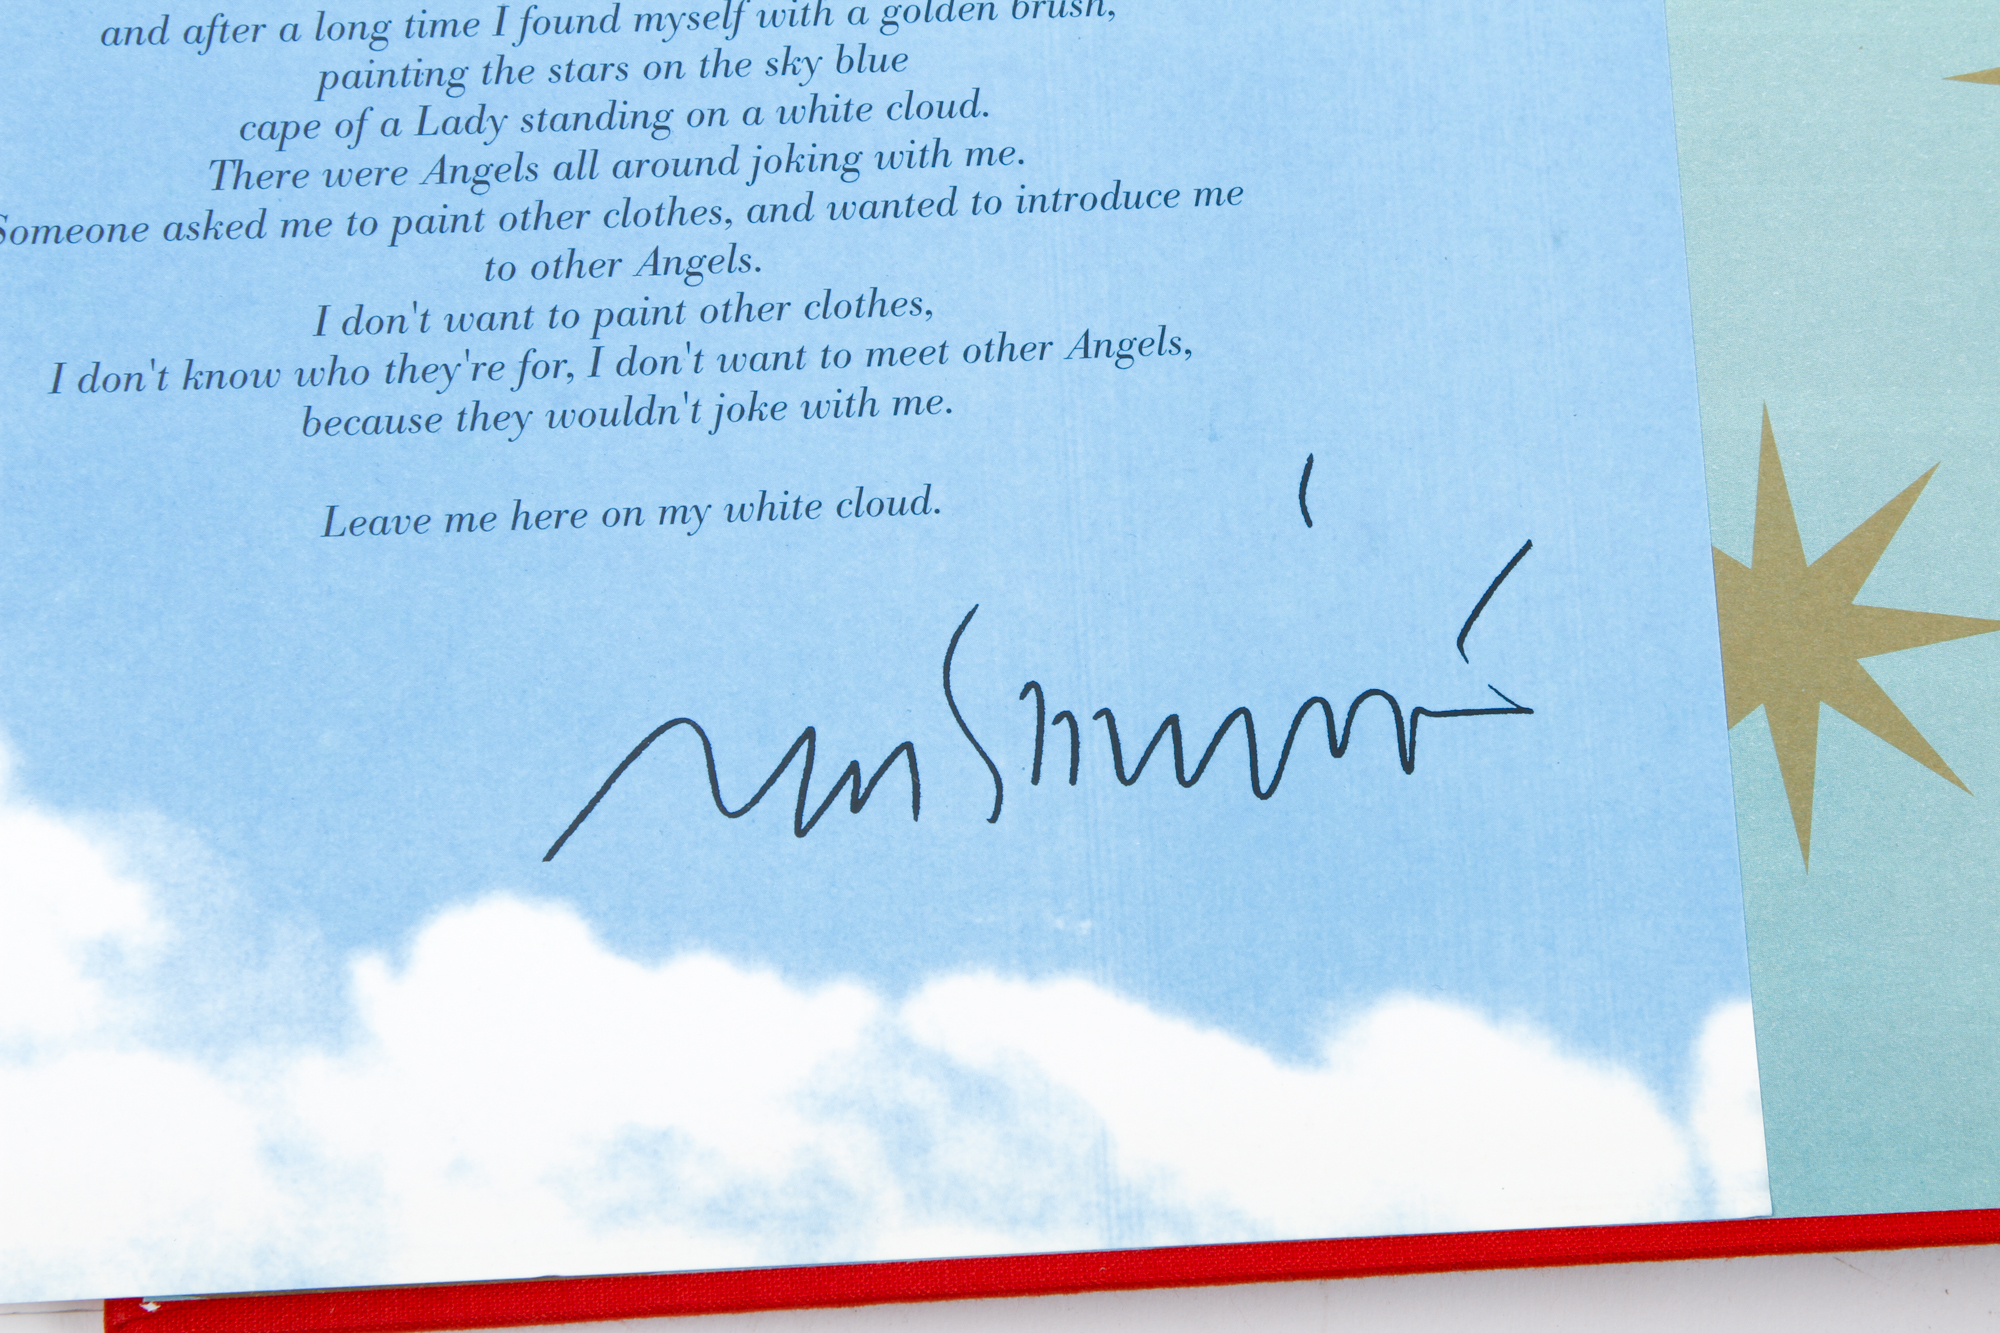 and after a long time I found myself with a golden brush,
painting the stars on the sky blue
cape of a Lady standing on a white cloud.
There were Angels all around joking with me.
Someone asked me to paint other clothes, and wanted to introduce me
to other Angels.
I don't want to paint other clothes,
I don't know who they're for, I don't want to meet other Angels,
because they wouldn't joke with me.
Leave me here on my white cloud.